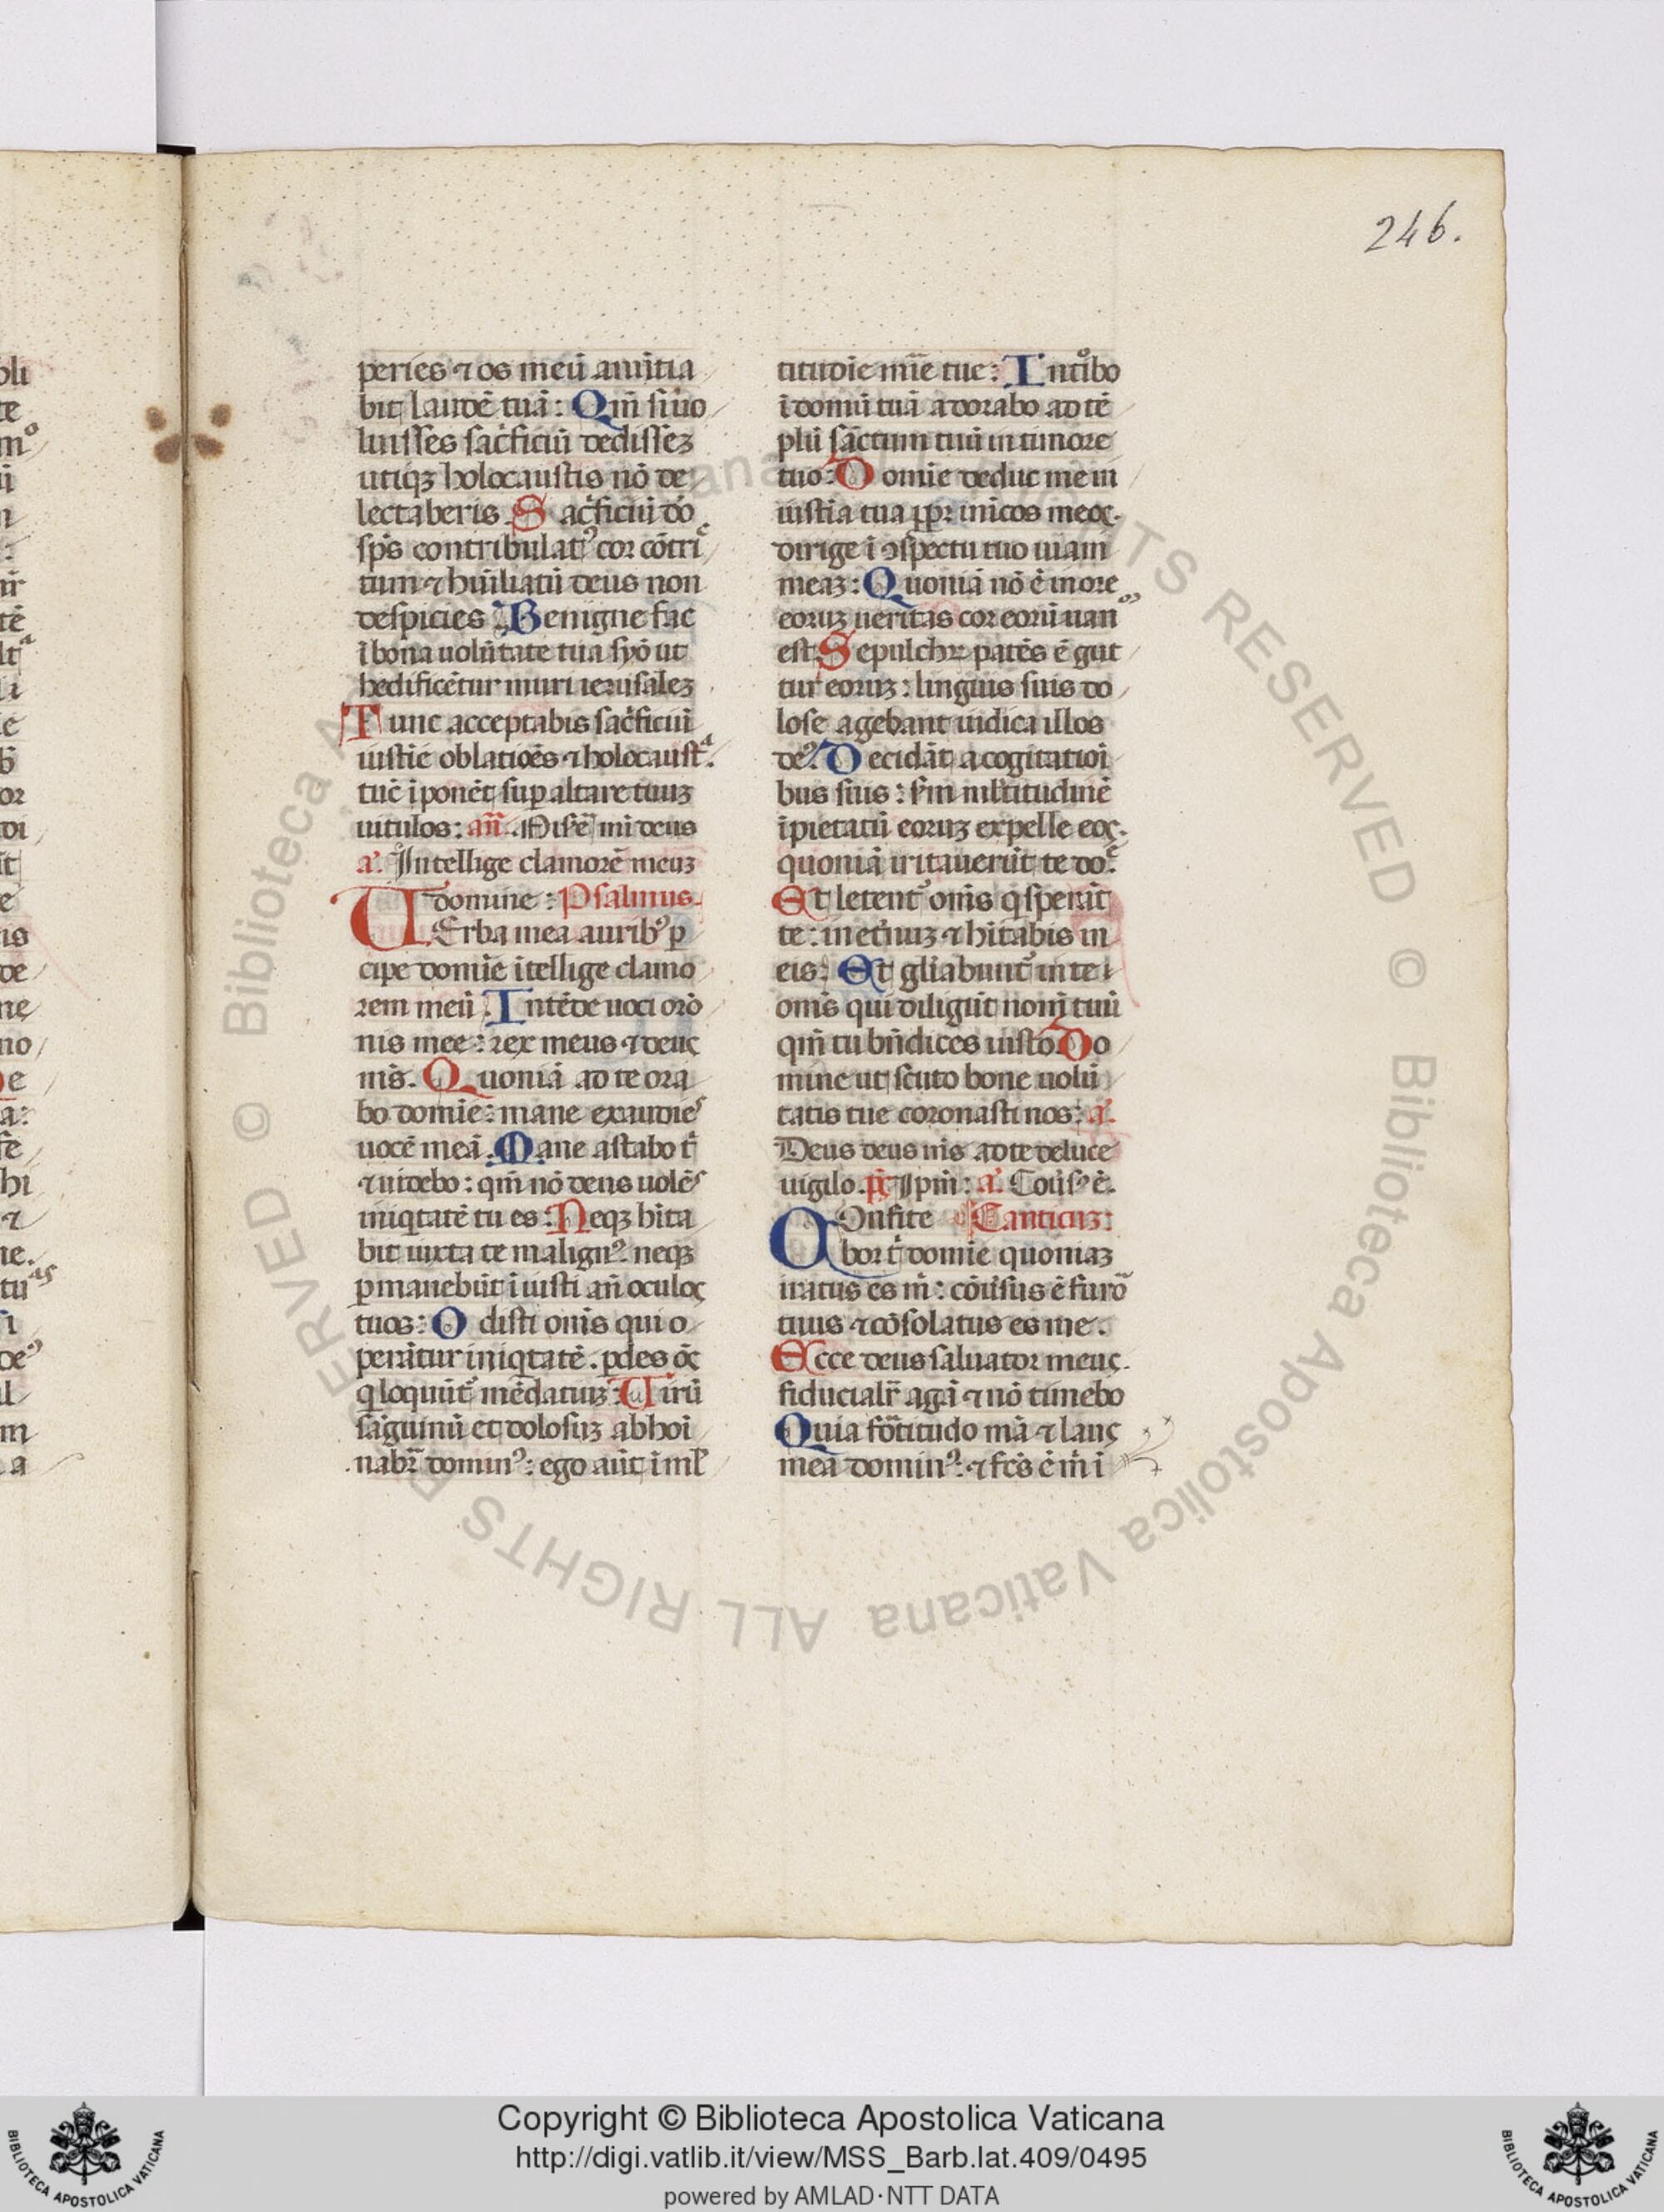 246.
peries ⁊ os meū anūtia
bit laudē tuā: Qm̄ si uo
luisses sac̄ficiū dedissez
utiqꝫ holocaustis nō de
lectaberis. Sac̄ficiū dō
sp̄s contribulatꝰ cor cōtri
tum ⁊ hūiliatū deus non
despicies. Benigne fac
ī bona uolūtate tua syō ut
hedificētur muri ierusalez
Tunc acceptabis sac̄ficiū
iustic̄ oblatiōes ⁊ holocaustᵃ.
tūc īponēt sup altare tuuz
uitulos: an̄. Misēr mi deus
a. Intellige clamorē meuz
domine: Psalmus.
UErba mea auribꝰ p
cipe domīe ītellige clamo
rem meū. Intēde uoci orō
nis mee: rex meus ⁊ deus
m̄s. Quoniā ad te ora
bo domīe: mane exaudies
uocē meā. Mane astabo t̄
⁊ uidebo: qm̄ nō deus uolēs
iniq̄tatē tu es: Neqꝫ hīta
bit iuxta te malignꝰ. neqꝫ
ꝑmanebūt īiusti an̄ oculos
tuos: Odisti om̄s qui o
perātur iniq̄tatē. ꝑdes ōs
q̄ loquūtʳ mēdatiuz: Uirū
sāguinū et dolosuz abhoī
nabr̄ dominꝰ: ego aūt ī ml̄
titudīe mīe tue: Intᵒībo
ī domū tuā adorabo ad tē
plū sāctum tuū in timore
tuo: Domīe deduc me in
iustīa tua ꝓpꝛ inīcos meos.
dirige ī ↄspectu tuo uiam
meaz: Quoniā nō ē in ore
eoruz ueritas cor eorū uan
est. Sepulchꝝ patēs ē gut
tur eoruz: linguis suis do
lose agebant iudica illos
deꝰ. Decidāt a cogitatioī
bus suis: sm̄ ml̄titudinē
īpietatū eoruz expelle eos.
quoniā irritauerūt te do.
Et letentʳ om̄s q̄ sperāt
te: in et̄nuz ⁊ hītabis in
eis: Et gl̄iabuntʳ in te
om̄s qui diligūt nom̄ tuū
qm̄ tu bn̄dices iusto. Do
mine ut scuto bone uolū
tatis tue coronasti nos: a.
Deus deus m̄s ad te de luce
uigilo. ps̄ Ipm̄: a. Cōūsꝰ ē.
COnfite Canticuz:
bor t̄ domīe quoniaz
iratus es m̄: cōūsus ē furō
tuus ⁊ cōsolatus es me.
Ecce deus saluator meus.
fiducialr̄ agā ⁊ nō timebo
Quia fōtitudo mā ⁊ laus
mea dominꝰ: ⁊ fc̄s ē m̄ i
© Biblioteca Apostolica Vaticana ALL RIGHTS RESERVED
Copyright © Biblioteca Apostolica Vaticana
http://digi.vatlib.it/view/MSS_Barb.lat.409/0495
powered by AMLAD·NTT DATA
BIBLIOTECA APOSTOLICA VATICANA
BIBLIOTECA APOSTOLICA VATICANA